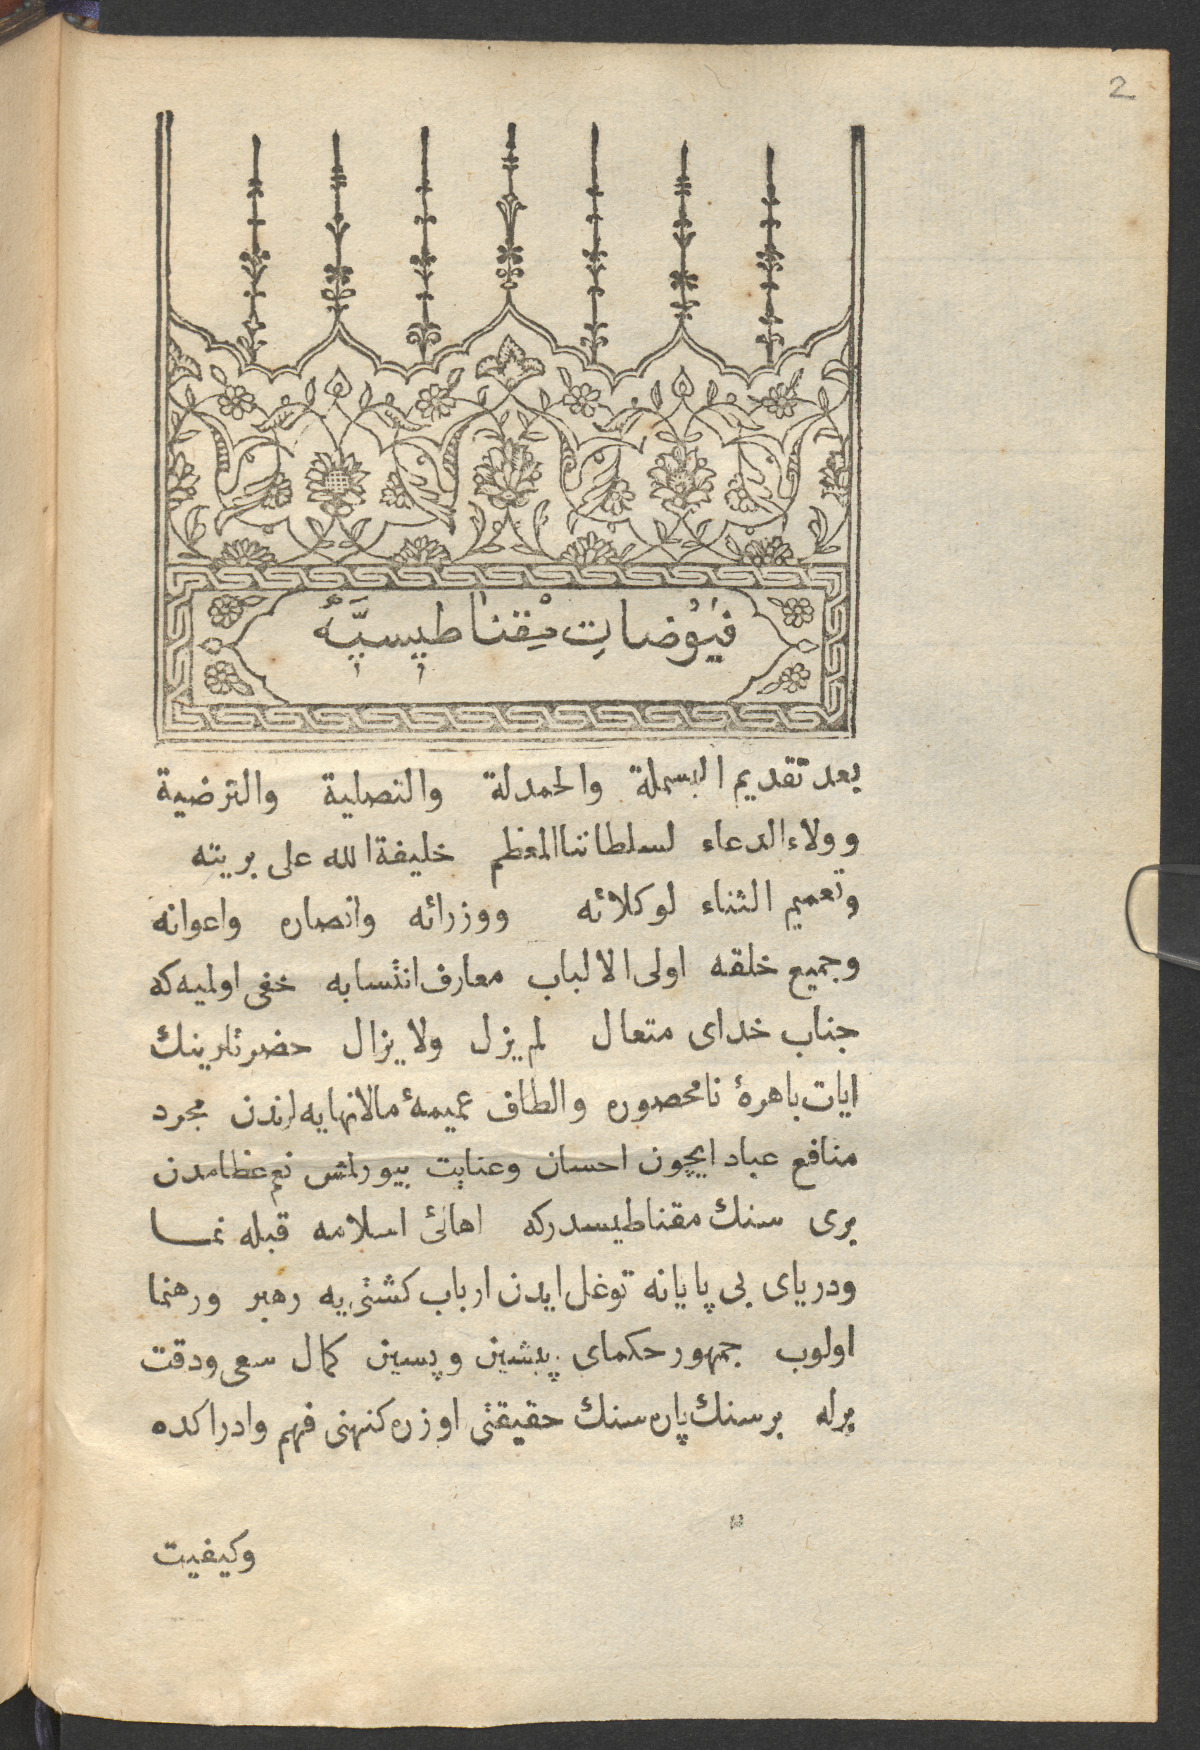 2
فيوضات مقناطيسيه
بعد تقديم البسملة والحمدلة والتصلية والترضية
وولاء الدعاء لسلطاننا المعظم خليفة الله على بريته
وتعميم الثناء لوكلائه ووزرائه وانصاره واعوانه
وجميع خلقه اولى الالباب معارف انتسابه خفى اولميه كه
جناب خداى متعال لم يزل ولا يزال حضرتلرينك
ايات باهرهٔ نامحصوره والطاف عميمهٔ مالانهايه لرندن مجرد
منافع عباد ايچون احسان وعنايت بيورلمش نعم عظامدن
برى سنك مقناطيسدركه اهالئ اسلامه قبله نما
ودرياى بى پايانه توغل ايدن ارباب كشتى يه رهبر ورهنما
اولوب جمهور حكماى پيشين وپسين كمال سعى ودقت
برله بر سنك پاره سنك حقيقتى اوزره كنهنى فهم وادراكده
وكيفيت